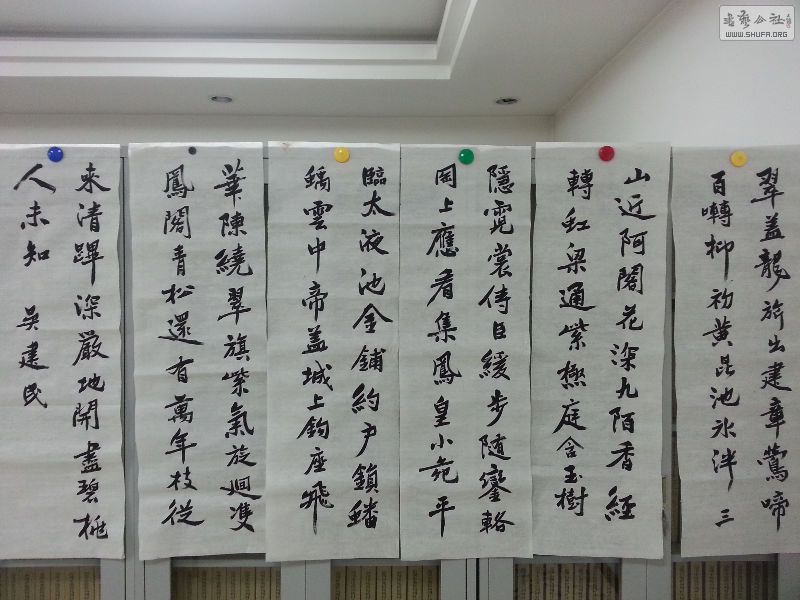 翠盖龍旂出建章鶯啼
百囀柳初黄昆池氷泮三
山近阿閣花深九陌香經
轉虹梁通紫極庭含玉樹
隱霓裳侍臣緩步随鑾輅
岡上應看集鳳皇小苑平
臨太液池金鋪約户鎖蟠
螭雲中帝盖城上鈎座飛
華陳繞翠旗紫氣旋迴雙
鳳閣青松還有萬年枝從
来清蹕深嚴地開盡碧桃
人未知 吴建民
书艺公社
WWW.SHUFA.ORG